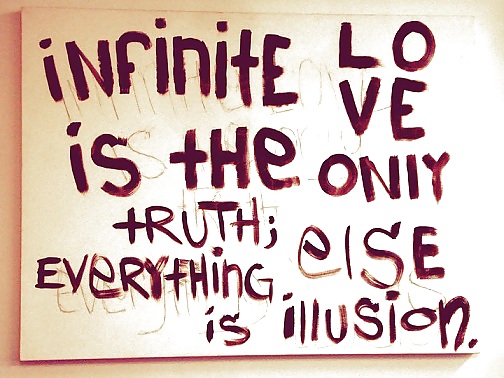 infinitE LO
VE
is tHe ONlY
tRUTH;
EVERYtHinG elSE
is illusion.